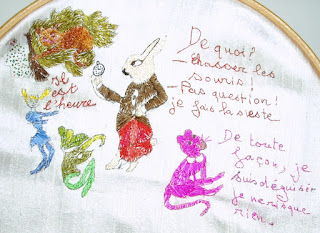 Il
est
l'heure
De quoi?
- Chasser les
souris!
- Pas question!
je fais la sieste
De toute
façon, je
suis déguisée
je ne risque
rien.